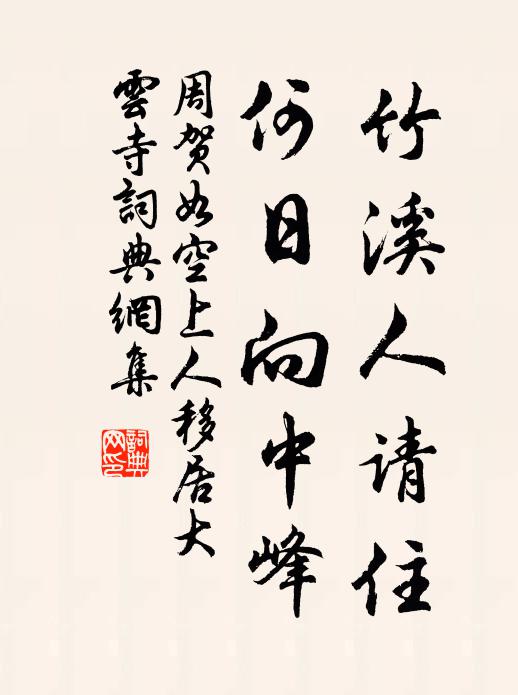 竹溪人请住
何日向中峰
周贺如空上人移居大
雲寺詞典網集
詞典
网印